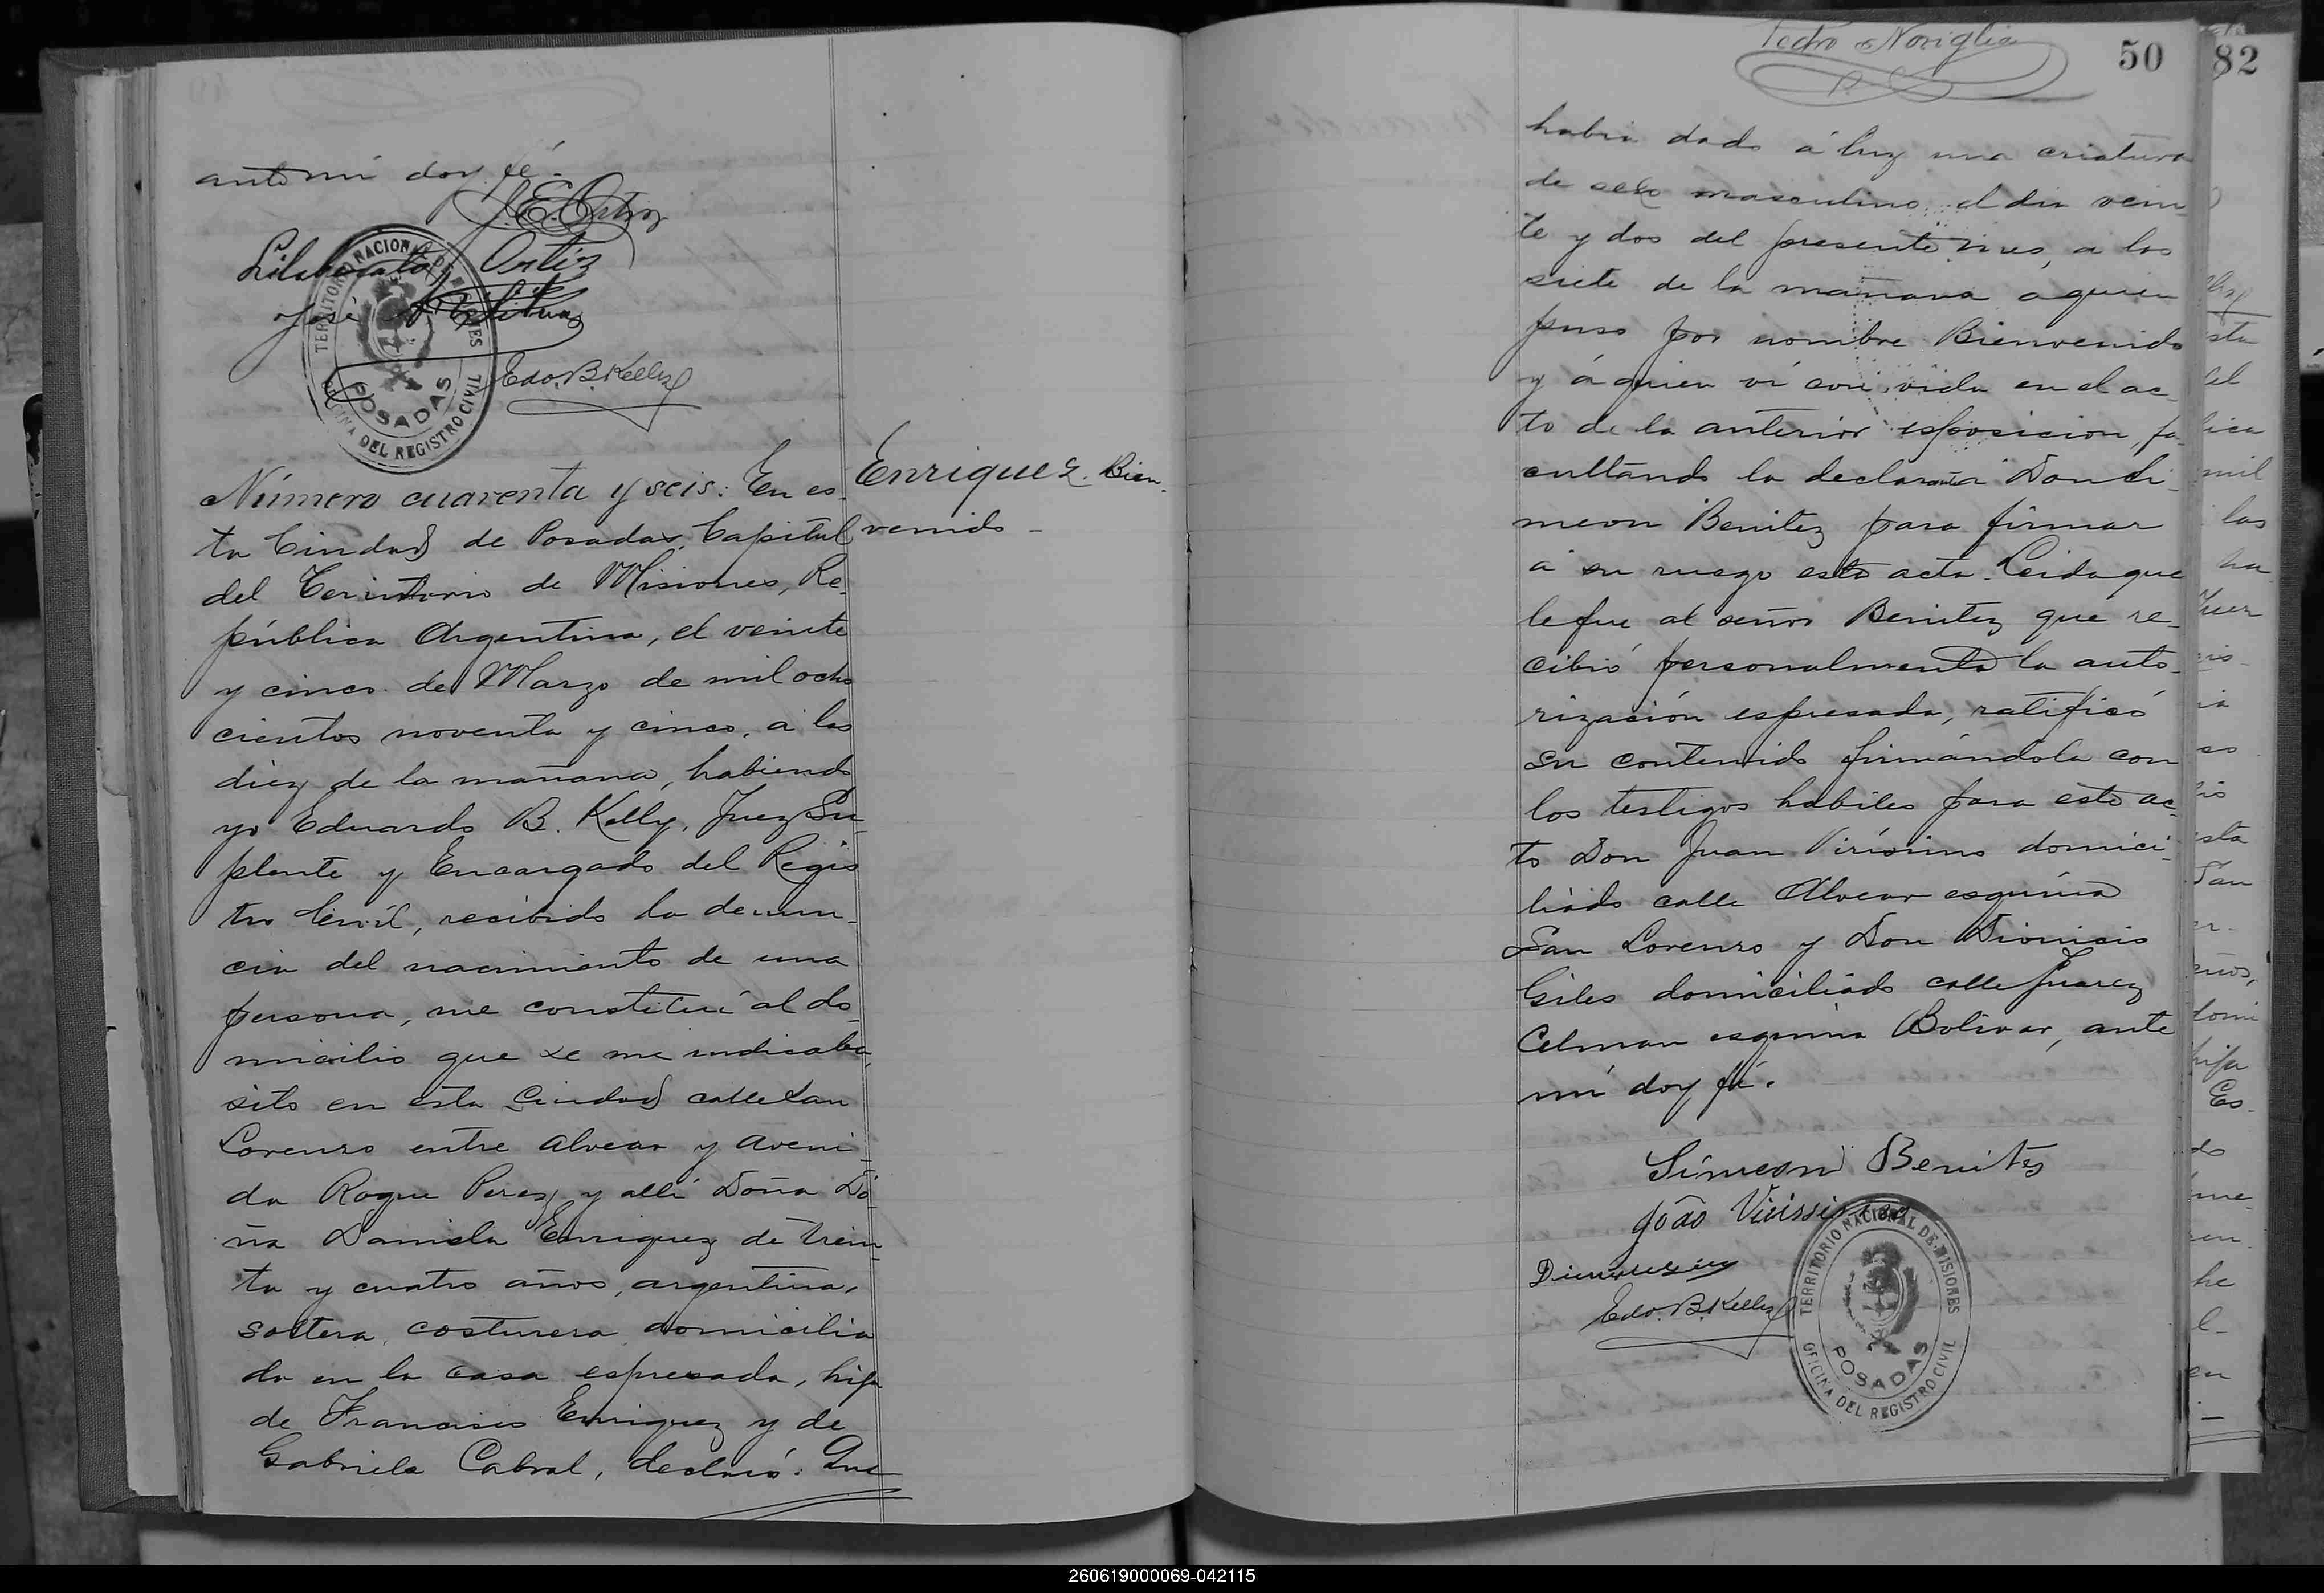 ante mi doy fé.
J. E. Ortiz
Ortiz
José
Edo. B. Kelly
TERRITORIO NACIONAL DE MISIONES
POSADAS
OFICINA DEL REGISTRO CIVIL
Número cuaren­ta y seis: En es-
ta Ciudad de Posadas, Capital
del Territorio de Misiones, Re-
pública Argentina, el veinte
y cinco de Marzo de mil ocho
cientos noventa y cinco, a las
diez de la mañana, habiendo
yo Eduardo B. Kelly, Juez Su-
plente y Encargado del Regis
tro Civil, recibido la denun-
cia del nacimiento de una
persona, me constituí al do-
micilio que se me indicaba,
sito en esta Ciudad calle San
Lorenzo entre Alvear y Aveni-
da Roque Perez y allí Doña Do
ña Daniela Enriquez de trein-
ta y cuatro años, argentina,
soltera, costurera domicilia
da en la casa espresada, hija
de Francisco Enriquez y de
Gabriela Cabral, declaró: Que
Enriquez. Bien-
venido -
Pedro Noviglia
50
82
habia dado á luz una criatura
de sexo masculino, el dia vein-
te y dos del presente mes, a las
siete de la mañana a quien
puso por nombre Bienvenido
y á quien ví con vida en el ac-
to de la anterior esposicion, fa-
cultando la declarante a Don Si-
meon Benitez para firmar
á su ruego esta acta. Leida que
le fue al señor Benitez que re-
cibió personalmente la auto-
rización espresada, ratificó
su contenido firmándola con
los testigos habiles para este ac-
to Don Juan Virísimo domici-
liado calle Alvear esquina
San Lorenzo y Don Dionicio
Giles domiciliado calle Juarez
Celman esquina Bolivar, ante
mí doy fé.
Simeon Benites
João Viríssimo
Edo. B. Kelly
TERRITORIO NACIONAL DE MISIONES
POSADAS
OFICINA DEL REGISTRO CIVIL
260619000069-042115